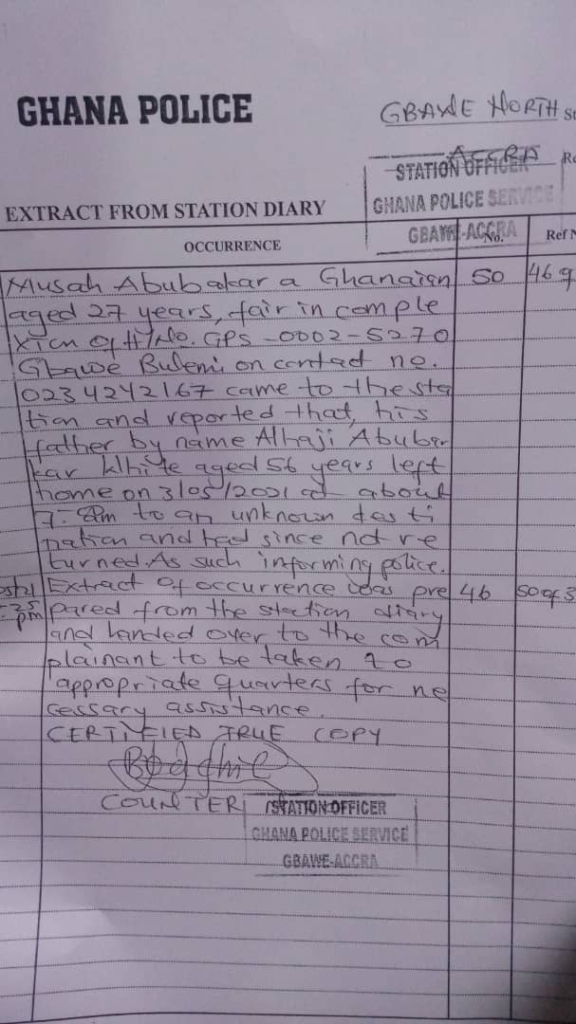 GHANA POLICE
GBAWE NORTH St
ACCRA
STATION OFFICER
GHANA POLICE SERVICE
GBAWE-ACCRA
EXTRACT FROM STATION DIARY
OCCURRENCE No. Ref N
Musah Abubakar a Ghanaian 50 46 of
aged 27 years, fair in comple
xion of H/No. GPS-0002-5270
Gbawe Bulemi on contact no.
0234242167 came to the sta
tion and reported that, his
father by name Alhaji Abuba
kar White aged 56 years left
home on 31/05/2021 at about
7:8pm to an unknown desti
nation and had since not re
turned. As such informing police.
05/21 Extract of occurrence was pre 46 50 of 3
:25 pm pared from the station diary
and handed over to the com
plainant to be taken to
appropriate quarters for ne
cessary assistance.
CERTIFIED TRUE COPY
COUNTER
STATION OFFICER
GHANA POLICE SERVICE
GBAWE-ACCRA